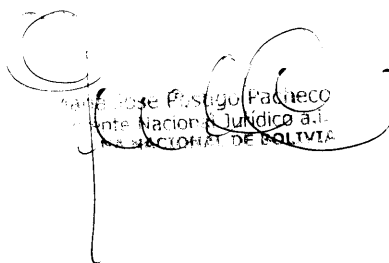 José Postigo Pacheco
Nacional Jurídico a.i.
NACIONAL DE BOLIVIA